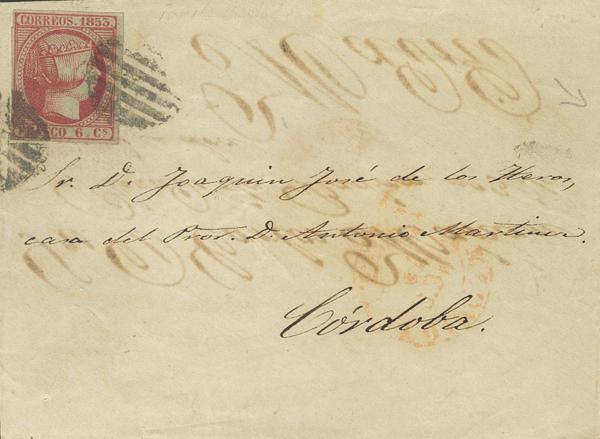 CORREOS. 1853.
FRANCO 6. Cs
Sr. D. Joaquin José de los Heros,
casa del Prov. D. Antonio Martinez.
Córdoba.